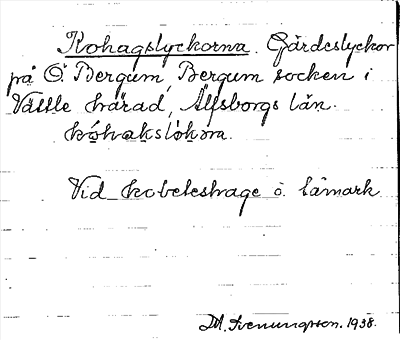 Kohagslyckorna. Gärdeslyckor
på Ö. Bergum, Bergum socken i
Vättle härad, Älfsborgs län.
Vid kobeteshage o. låmark
M. Svenungsson. 1938.